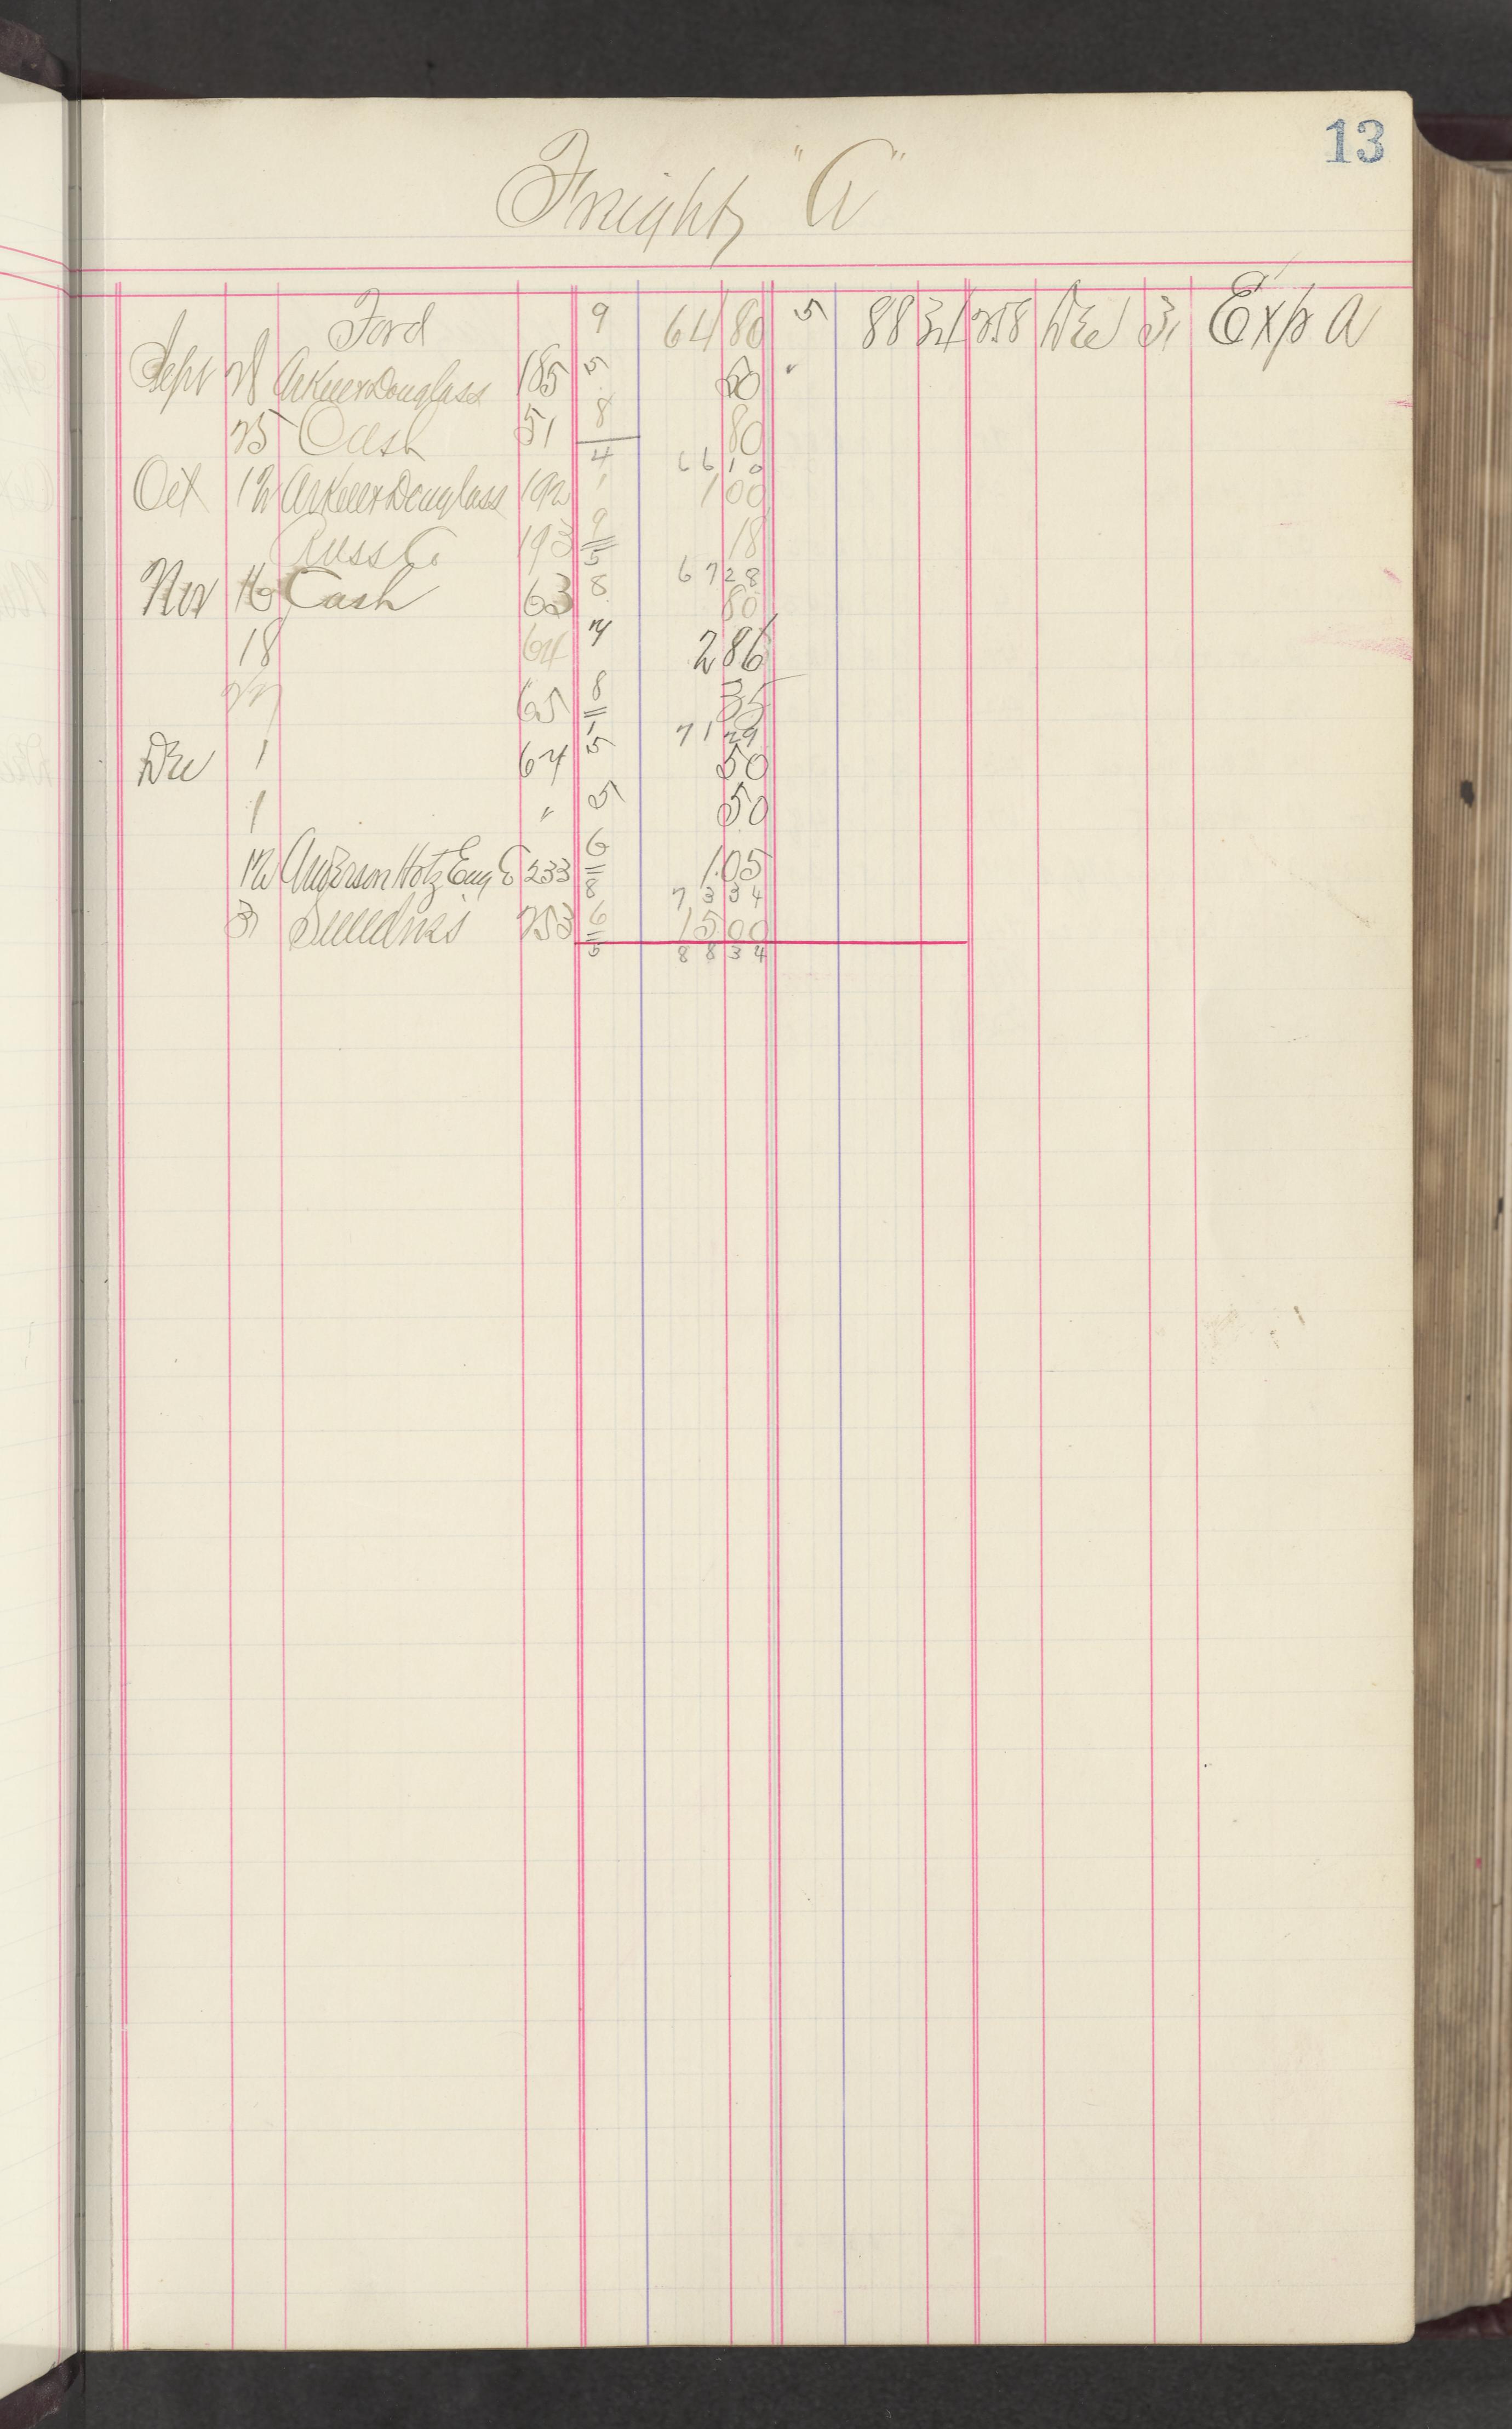 13
Freight "A"
Ford 9 64 80 5 88 34 258 Dec 31 Exp A
Sept 185 5 50
25 Cash 51 8 80
4 66 10
Oct 12 192 1 1 00
Russ Co 193 9 18
5 67 28
Nov 16 Cash 63 8 80
18 64 7 2 86
27 65 8 35
1 71 29
Dec 1 64 5 50
1 " 5 50
12 Anderson Eng Co 233 6 1.05
8 73 34
31 Sundries 253 6 15 00
5 88 34